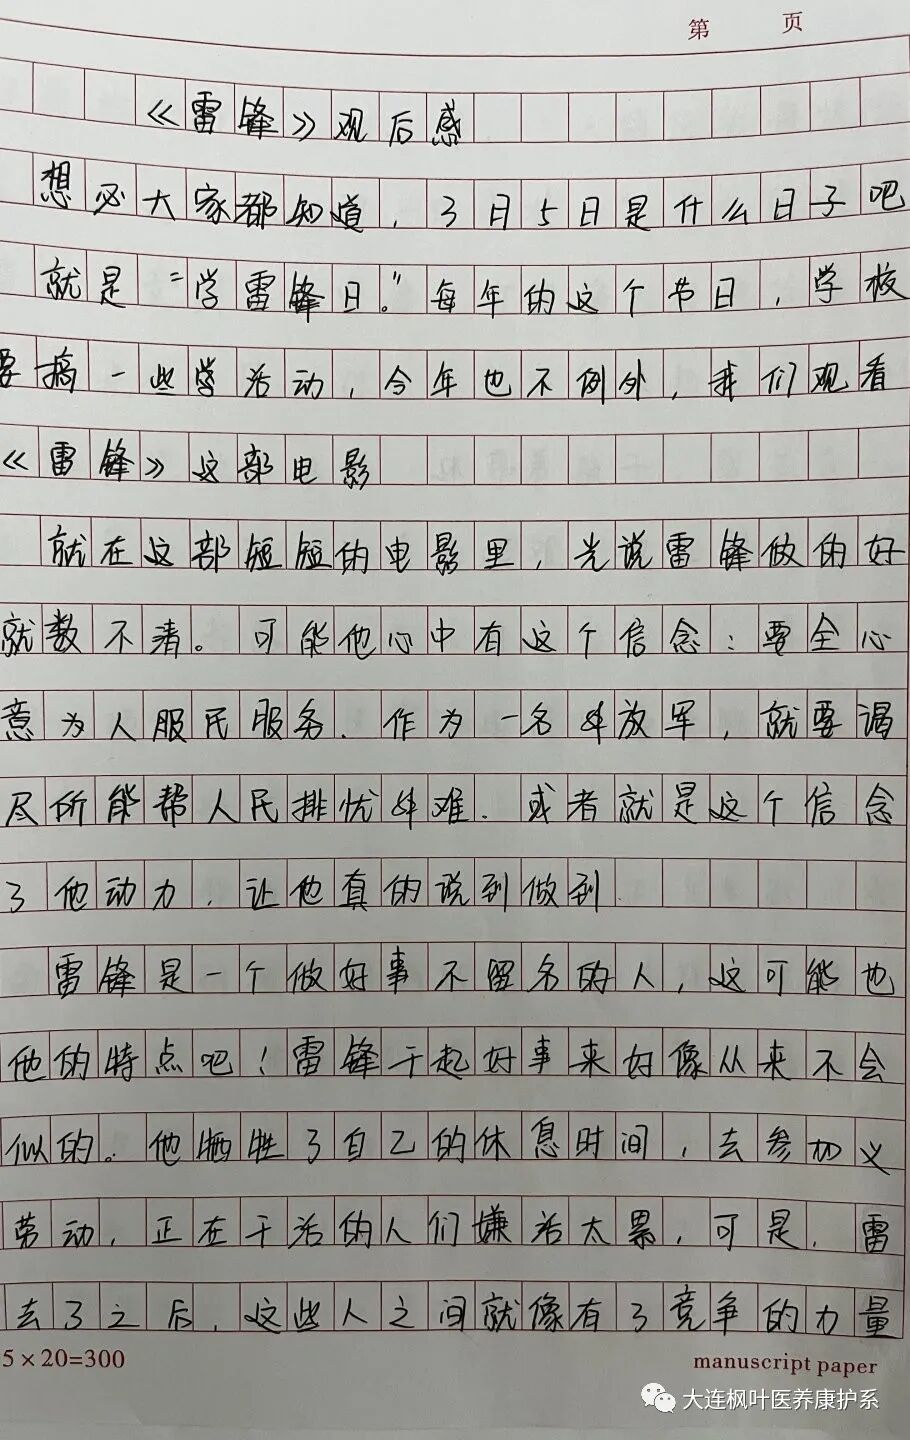 第 页
《雷锋》观后感
想必大家都知道，3月5日是什么日子吧
就是“学雷锋日。”每年的这个节日，学校
要搞一些学活动，今年也不例外，我们观看
《雷锋》这部电影
就在这部短短的电影里，光说雷锋做的好
就数不清。可能他心中有这个信念：要全心
意为人服民服务．作为一名解放军，就要谒
尽所能帮人民排忧解难．或者就是这个信念
了他动力，让他真的说到做到
雷锋是一个做好事不留名的人，这可能也
他的特点吧！雷锋干起好事来好像从来不会
似的。他牺牲了自己的休息时间，去参加义
劳动，正在干活的人们嫌活太累，可是．雷
去了之后，这些人之间就像有了竞争的力量
5×20=300
manuscript paper
大连枫叶医养康护系